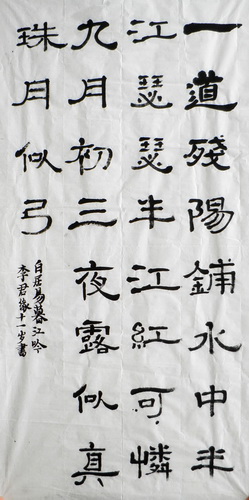 一道殘陽鋪水中半
江瑟瑟半江紅可憐
九月初三夜露似真
珠月似弓
白居易暮江吟
李君緣十一岁書